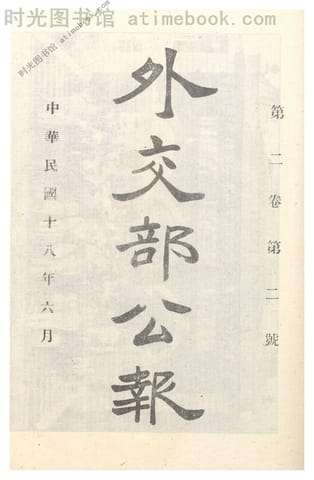 时光图书馆 - atimebook.com
时光图书馆 atimebook.com
第二卷第二號
外交部公報
中華民國十八年六月